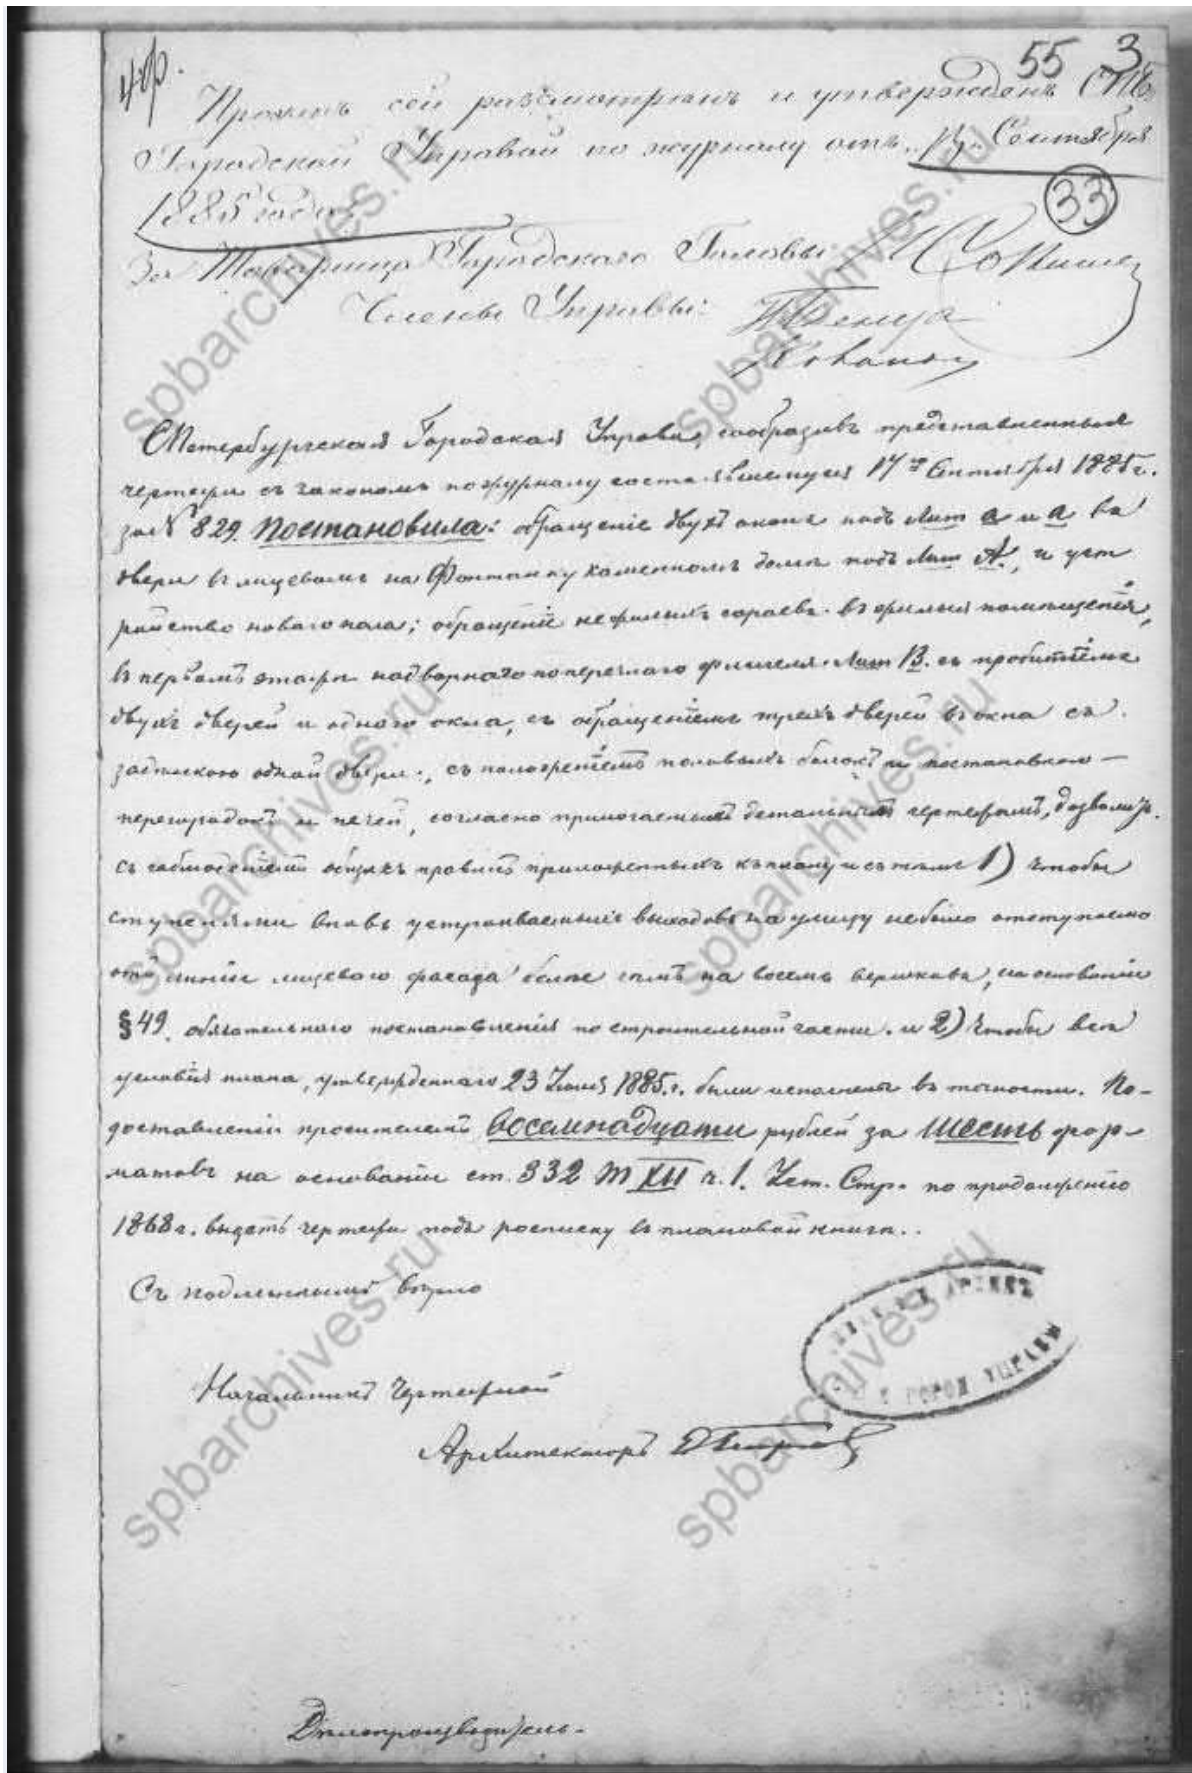 55 3
4ф.
Проектъ сей разсмотренъ и утвержденъ СПб.
Городской Управой по журналу отъ "17" Сентября
33
1885 года
За Товарища Городскаго Головы
Члены Управы:
СПетербургская Городская Управа, сообразивъ представленные
чертежи съ закономъ по журналу состоявшемуся 17го Сентября 1885 г.
за № 829. Постановила: обращеніе двухъ оконъ подъ Лит а и а въ
двери въ лицевомъ на Фонтанку каменномъ домѣ подъ Лит А., и уст
ройство новаго пола; обращеніе нежилыхъ сараевъ въ жилыя помѣщенія,
въ первомъ этажѣ надворнаго поперечнаго флигеля Лит В. съ пробитіемъ
двухъ дверей и одного окна, съ обращеніемъ трехъ дверей въ окна съ
задѣлкою одной двери, съ половыхъ балокъ и постановкою —
перегородокъ и печей, согласно прилогаемымъ детальнымъ чертежамъ, дозволить.
съ соблюденіемъ общихъ правилъ приложенныхъ къ плану и съ тѣмъ 1) чтобы
ступенями вновь устроиваемыхъ выходовъ на улицу небыло отступлено
отъ линіи лицеваго фасада болѣе чѣмъ на восемь вершковъ, на основаніи
§ 49. обязательнаго постановленія по строительной части. и 2) чтобы всѣ
условія плана, утвержденнаго 23 1885. г. были исполнены въ точности. По-
доставленіи просителемъ восемнадцати рублей за шесть фор-
матовъ на основаніи ст. 332 Т XII ч. 1. Уст. Стр. по продолженію
1868 г. выдать чертежи подъ росписку въ плановой книгѣ..
Съ подлиннымъ вѣрно
Начальникъ Чертежной
Архитекторъ
Дѣлопроизводитель.
spbarchives.ru
spbarchives.ru
spbarchives.ru
spbarchives.ru
spbarchives.ru
spbarchives.ru